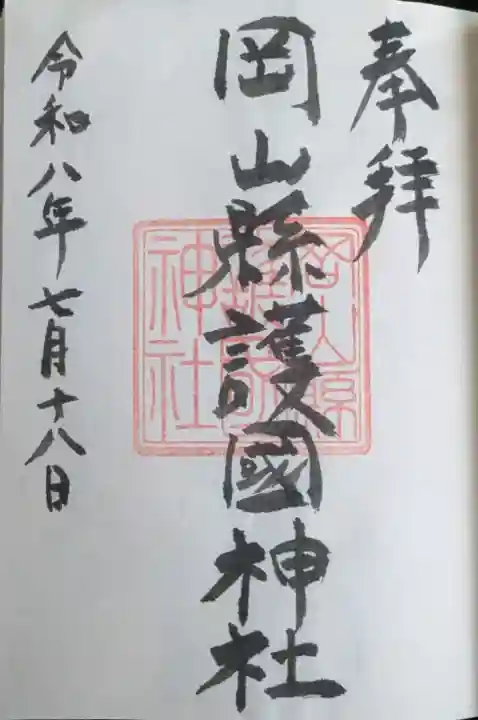 奉拝
岡山縣護國神社
岡山縣
護國
神社
令和八年七月十八日